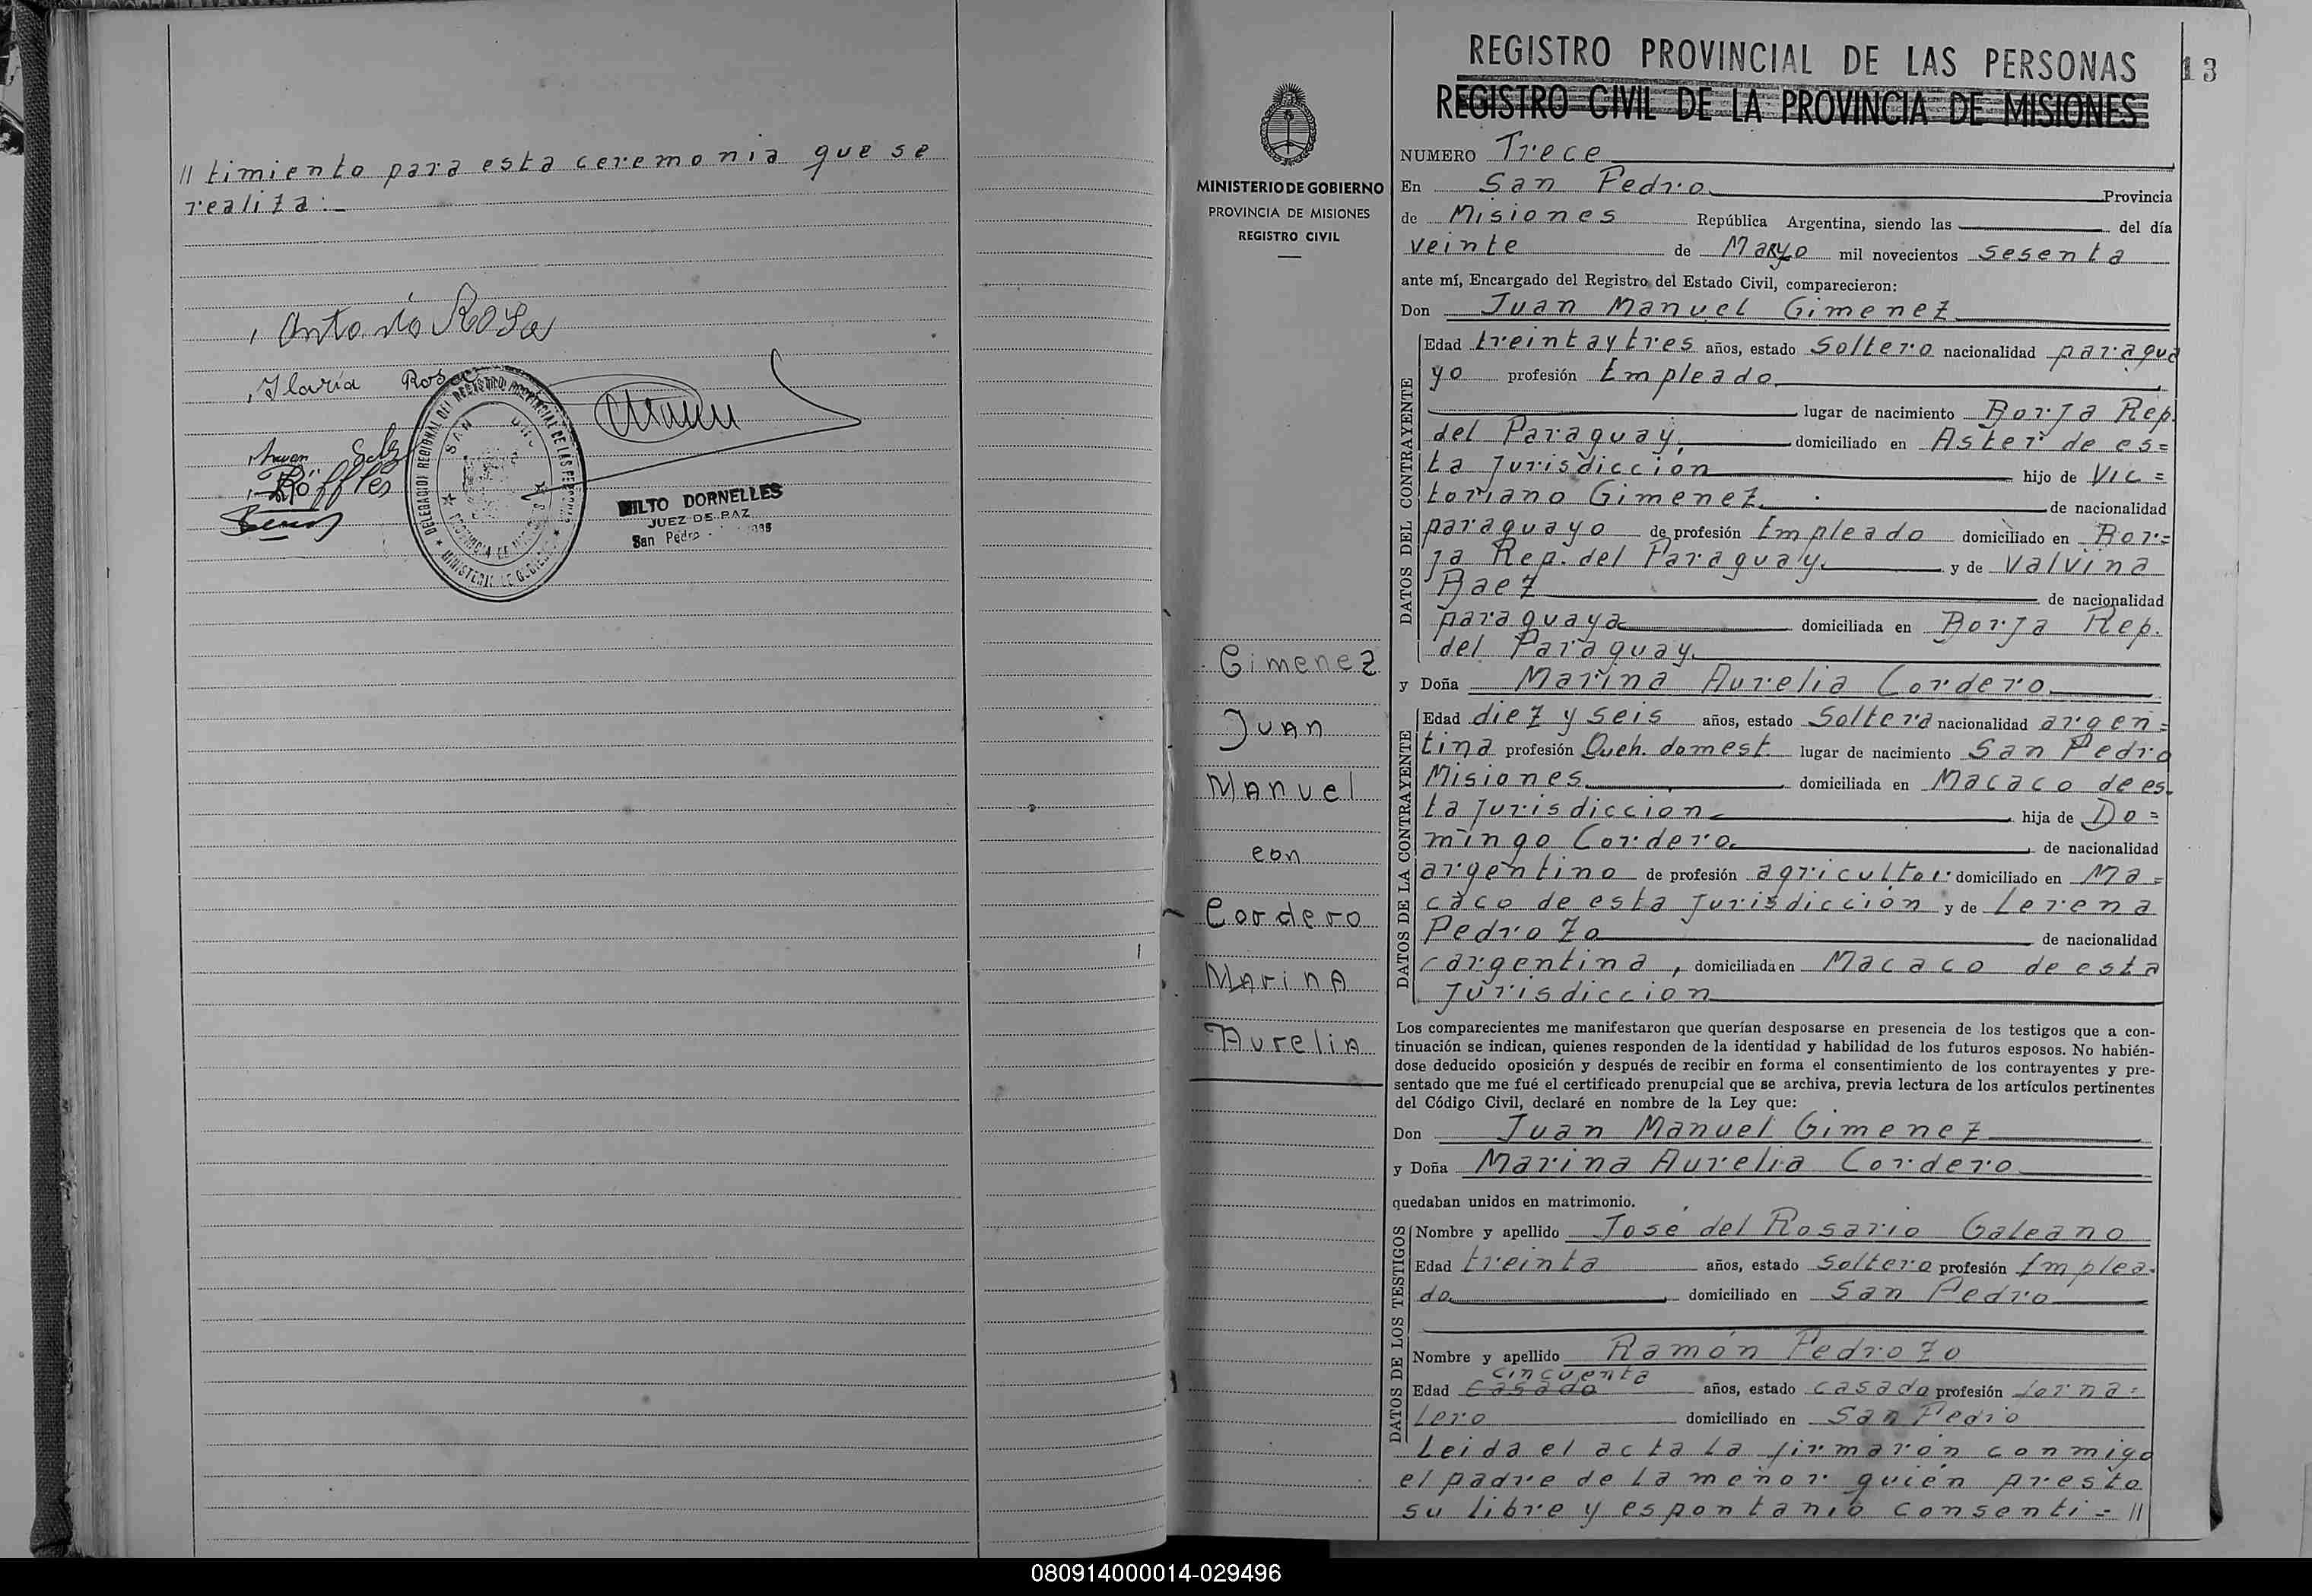 // timiento para esta ceremonia que se
realiza:_
Antonio Rosa
Ilaria Rosa
DELEGACION REGIONAL DEL REGISTRO PROVINCIAL DE LAS PERSONAS
SAN
PROVINCIA DE
MINISTERIO DE GOBIERNO
MILTO DORNELLES
JUEZ DE PAZ
San Pedro
MINISTERIO DE GOBIERNO
PROVINCIA DE MISIONES
REGISTRO CIVIL
Gimenez
Juan
Manuel
con
Cordero
Marina
Aurelia
REGISTRO PROVINCIAL DE LAS PERSONAS
13
REGISTRO CIVIL DE LA PROVINCIA DE MISIONES
NUMERO Trece
En San Pedro Provincia
de Misiones República Argentina, siendo las del día
veinte de Maryo mil novecientos sesenta
ante mí, Encargado del Registro del Estado Civil, comparecieron:
Don Juan Manuel Gimenez
DATOS DEL CONTRAYENTE
Edad treintaytres años, estado Soltero nacionalidad paragua
yo profesión Empleado
lugar de nacimiento Borja Rep.
del Paraguay, domiciliado en Aster de es=
ta Jurisdiccion hijo de Vic=
toriano Gimenez. de nacionalidad
paraguayo de profesión Empleado domiciliado en Bor=
ja Rep. del Paraguay. y de Valvina
Baez de nacionalidad
paraguaya domiciliada en Borja Rep.
del Paraguay.
y Doña Marina Aurelia Cordero
DATOS DE LA CONTRAYENTE
Edad diez y seis años, estado Soltera nacionalidad argen=
tina profesión Queh. domest. lugar de nacimiento San Pedro
Misiones domiciliada en Macaco de es-
ta Jurisdiccion hija de Do=
mingo Cordero. de nacionalidad
argentino de profesión agricultor domiciliado en Ma=
caco de esta Jurisdiccion y de Lerena
Pedrozo de nacionalidad
argentina, domiciliada en Macaco de esta
Jurisdiccion
Los comparecientes me manifestaron que querían desposarse en presencia de los testigos que a con-
tinuación se indican, quienes responden de la identidad y habilidad de los futuros esposos. No habién-
dose deducido oposición y después de recibir en forma el consentimiento de los contrayentes y pre-
sentado que me fué el certificado prenupcial que se archiva, previa lectura de los artículos pertinentes
del Código Civil, declaré en nombre de la Ley que:
Don Juan Manuel Gimenez
y Doña Marina Aurelia Cordero
quedaban unidos en matrimonio.
DATOS DE LOS TESTIGOS
Nombre y apellido José del Rosario Galeano
Edad treinta años, estado Soltero profesión Emplea-
do domiciliado en San Pedro
Nombre y apellido Ramón Pedrozo
cincuenta
Edad Casado años, estado casado profesión Jorna=
lero domiciliado en San Pedro
Leida el acta la firmaron conmigo
el padre de la menor quien presto
su libre y espontanio consenti=//
080914000014-029496